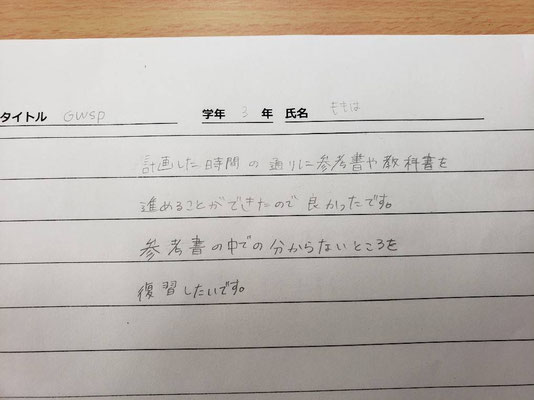 タイトル GWSP 学年 3 年 氏名 ももは
計画した時間の通りに参考書や教科書を
進めることができたので良かったです。
参考書の中での分からないところを
復習したいです。